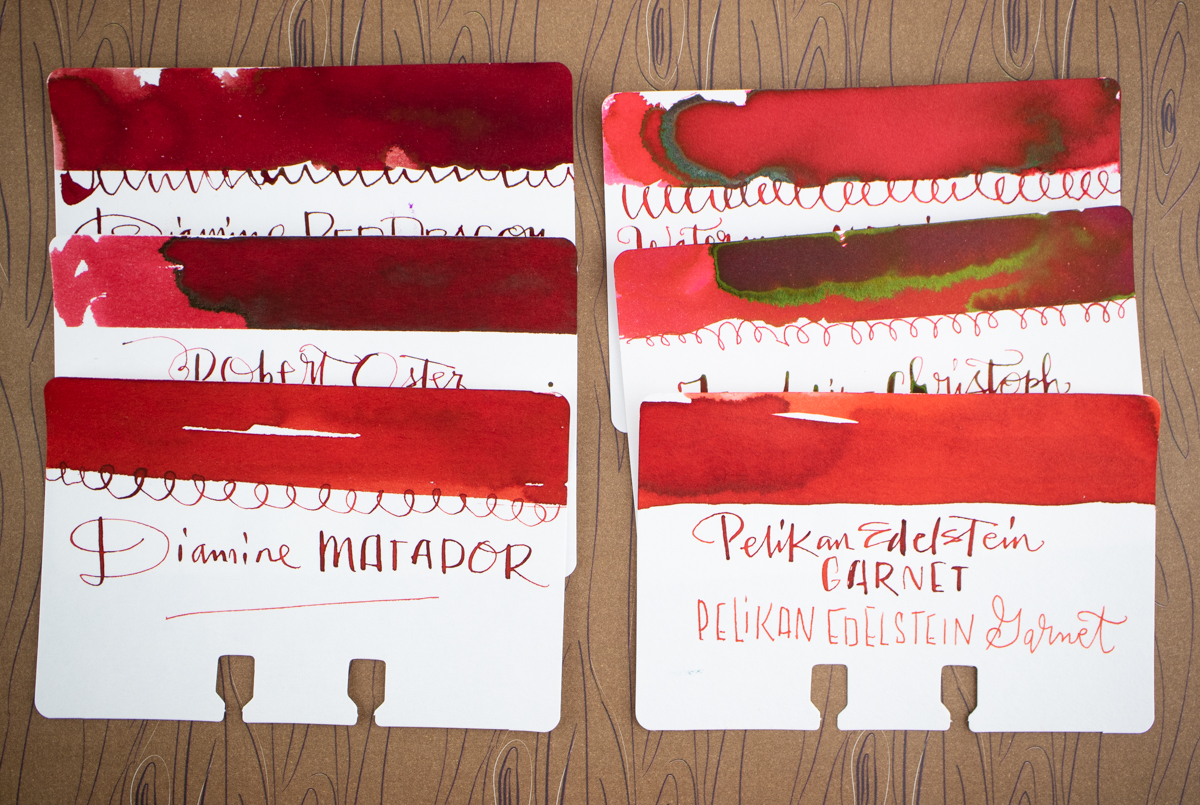 Diamine RED DRAGON
Robert Oster
Diamine MATADOR
Christoph
Pelikan Edelstein
GARNET
PELIKAN EDELSTEIN Garnet